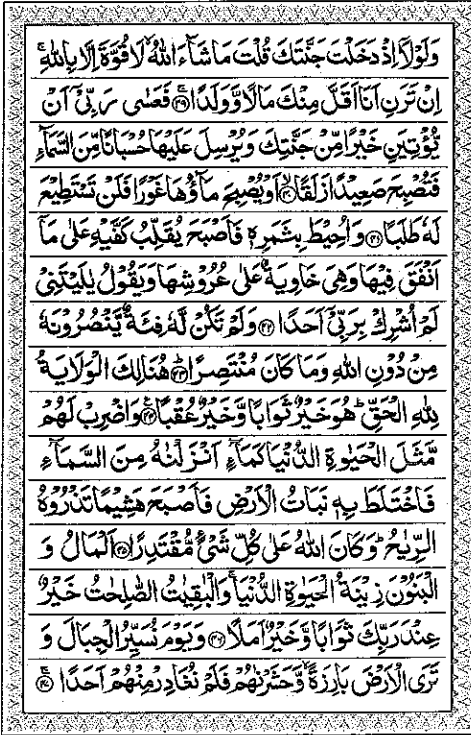 وَلَوْلَاۤ اِذْ دَخَلْتَ جَنَّتَكَ قُلْتَ مَا شَآءَ اللّٰهُ لَا قُوَّةَ اِلَّا بِاللّٰهِ ۚ
اِنْ تَرَنِ اَنَا اَقَلَّ مِنْكَ مَالًا وَّوَلَدًا ۚ﴿۳۹﴾ فَعَسٰى رَبِّیْۤ اَنْ
یُّؤْتِیَنِ خَیْرًا مِّنْ جَنَّتِكَ وَیُرْسِلَ عَلَیْهَا حُسْبَانًا مِّنَ السَّمَآءِ
فَتُصْبِحَ صَعِیْدًا زَلَقًا ۙ﴿۴۰﴾ اَوْ یُصْبِحَ مَآؤُهَا غَوْرًا فَلَنْ تَسْتَطِیْعَ
لَهٗ طَلَبًا ﴿۴۱﴾ وَاُحِیْطَ بِثَمَرِهٖ فَاَصْبَحَ یُقَلِّبُ كَفَّیْهِ عَلٰى مَاۤ
اَنْفَقَ فِیْهَا وَهِیَ خَاوِیَةٌ عَلٰى عُرُوْشِهَا وَیَقُوْلُ یٰلَیْتَنِیْ
لَمْ اُشْرِكْ بِرَبِّیْۤ اَحَدًا ﴿۴۲﴾ وَلَمْ تَكُنْ لَّهٗ فِئَةٌ یَّنْصُرُوْنَهٗ
مِنْ دُوْنِ اللّٰهِ وَمَا كَانَ مُنْتَصِرًا ؕ﴿۴۳﴾ هُنَالِكَ الْوَلَایَةُ
لِلّٰهِ الْحَقِّ ؕ هُوَ خَیْرٌ ثَوَابًا وَّخَیْرٌ عُقْبًا ﴿۴۴﴾ وَاضْرِبْ لَهُمْ
مَّثَلَ الْحَیٰوةِ الدُّنْیَا كَمَآءٍ اَنْزَلْنٰهُ مِنَ السَّمَآءِ
فَاخْتَلَطَ بِهٖ نَبَاتُ الْاَرْضِ فَاَصْبَحَ هَشِیْمًا تَذْرُوْهُ
الرِّیٰحُ ؕ وَكَانَ اللّٰهُ عَلٰى كُلِّ شَیْءٍ مُّقْتَدِرًا ﴿۴۵﴾ اَلْمَالُ وَ
الْبَنُوْنَ زِیْنَةُ الْحَیٰوةِ الدُّنْیَا ۚ وَالْبٰقِیٰتُ الصّٰلِحٰتُ خَیْرٌ
عِنْدَ رَبِّكَ ثَوَابًا وَّخَیْرٌ اَمَلًا ﴿۴۶﴾ وَیَوْمَ نُسَیِّرُ الْجِبَالَ وَ
تَرَى الْاَرْضَ بَارِزَةً ۙ وَّحَشَرْنٰهُمْ فَلَمْ نُغَادِرْ مِنْهُمْ اَحَدًا ۚ﴿۴۷﴾